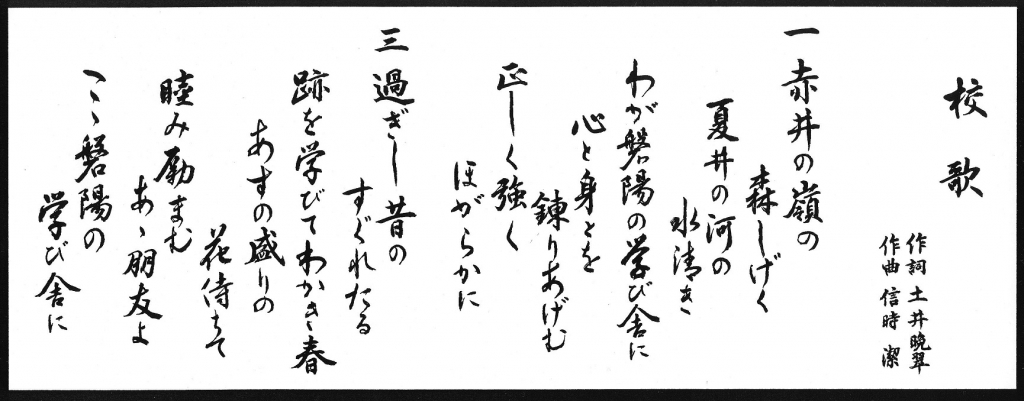 校歌
作詞 土井晩翠
作曲 信時 潔
一 赤井の嶺の
森しげく
夏井の河の
水清き
わが磐陽の学び舎に
心と身とを
錬りあげむ
正しく強く
ほがらかに
三 過ぎし昔の
すぐれたる
跡を学びてわかき春
あすの盛りの
花待ちて
睦み励まむ
あゝ朋友よ
こゝ磐陽の
学び舎に